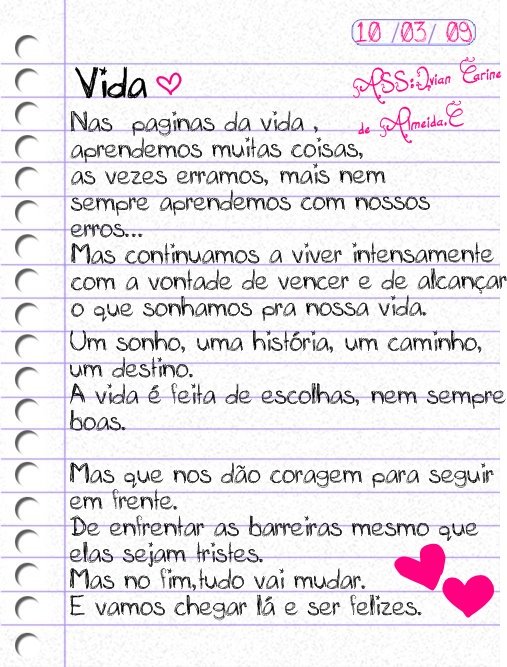 10 /03/ 09
Vida
ASS: Ivian Carine
de Almeida.C
Nas paginas da vida ,
aprendemos muitas coisas,
as vezes erramos, mais nem
sempre aprendemos com nossos
erros...
Mas continuamos a viver intensamente
com a vontade de vencer e de alcançar
o que sonhamos pra nossa vida.
Um sonho, uma história, um caminho,
um destino.
A vida é feita de escolhas, nem sempre
boas.
Mas que nos dão coragem para seguir
em frente.
De enfrentar as barreiras mesmo que
elas sejam tristes.
Mas no fim,tudo vai mudar.
E vamos chegar lá e ser felizes.